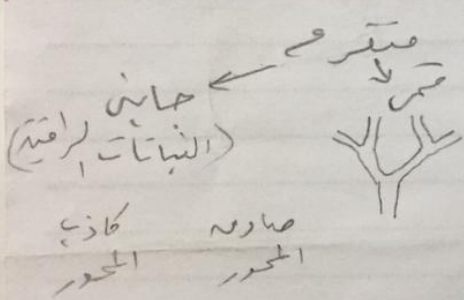 متفرع
قمي
جانبي
(النباتات الراقية)
صادق المحور
كاذب المحور